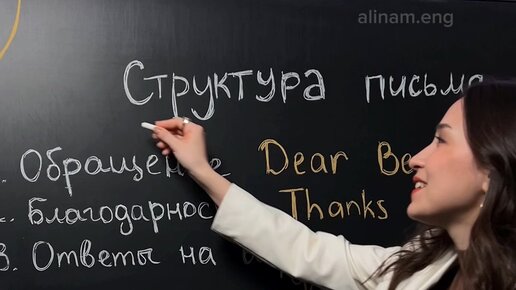 alinam.eng
Структура письма
Обращение Dear
2. Благодарнос Thanks
3. Ответы на